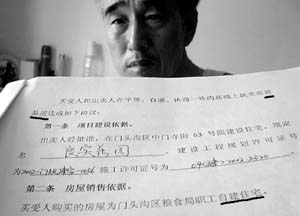 买受人和出卖人在平等、自愿、协商一致的基础上就买卖商
品房达成如下协议:
第一条 项目建设依据。
出卖人经批准，在门头沟区中门寺街63号院建设住宅，现定
名 建设工程规划许可证号
为 施工许可证号为
第二条 房屋销售依据。
买受人购买的房屋为门头沟区粮食局职工自建住宅。